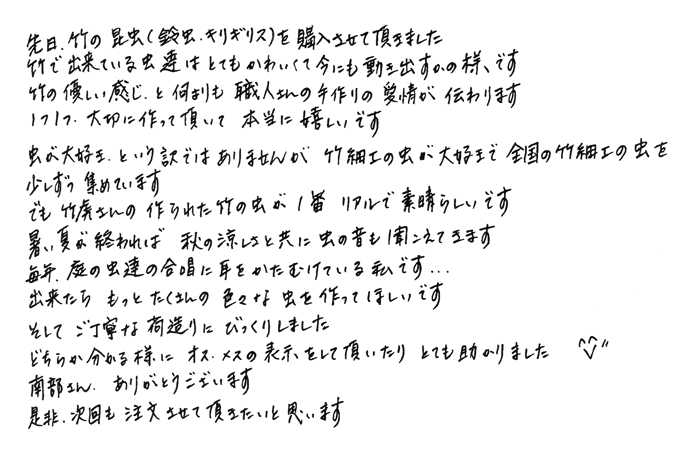 先日、竹の昆虫(鈴虫、キリギリス)を購入させて頂きました
竹で出来ている虫達はとてもかわいくて今にも動き出すかの様、です
竹の優しい感じ、と何よりも職人さんの手作りの愛情が伝わります
1つ1つ、大切に作って頂いて本当に嬉しいです
虫が大好き、という訳ではありませんが竹細工の虫が大好きで全国の竹細工の虫を
少しずつ集めています
でも竹虎さんの作られた竹の虫が1番リアルで素晴らしいです
暑い夏が終われば秋の涼しさと共に虫の音も聞こえてきます
毎年、庭の虫達の合唱に耳をかたむけている私です...
出来たらもっとたくさんの色々な虫を作ってほしいです
そしてご丁寧な荷造りにびっくりしました
どちらか分かる様にオス、メスの表示をして頂いたりとても助かりました ^^
南部さん、ありがとうございます
是非、次回も注文させて頂きたいと思います